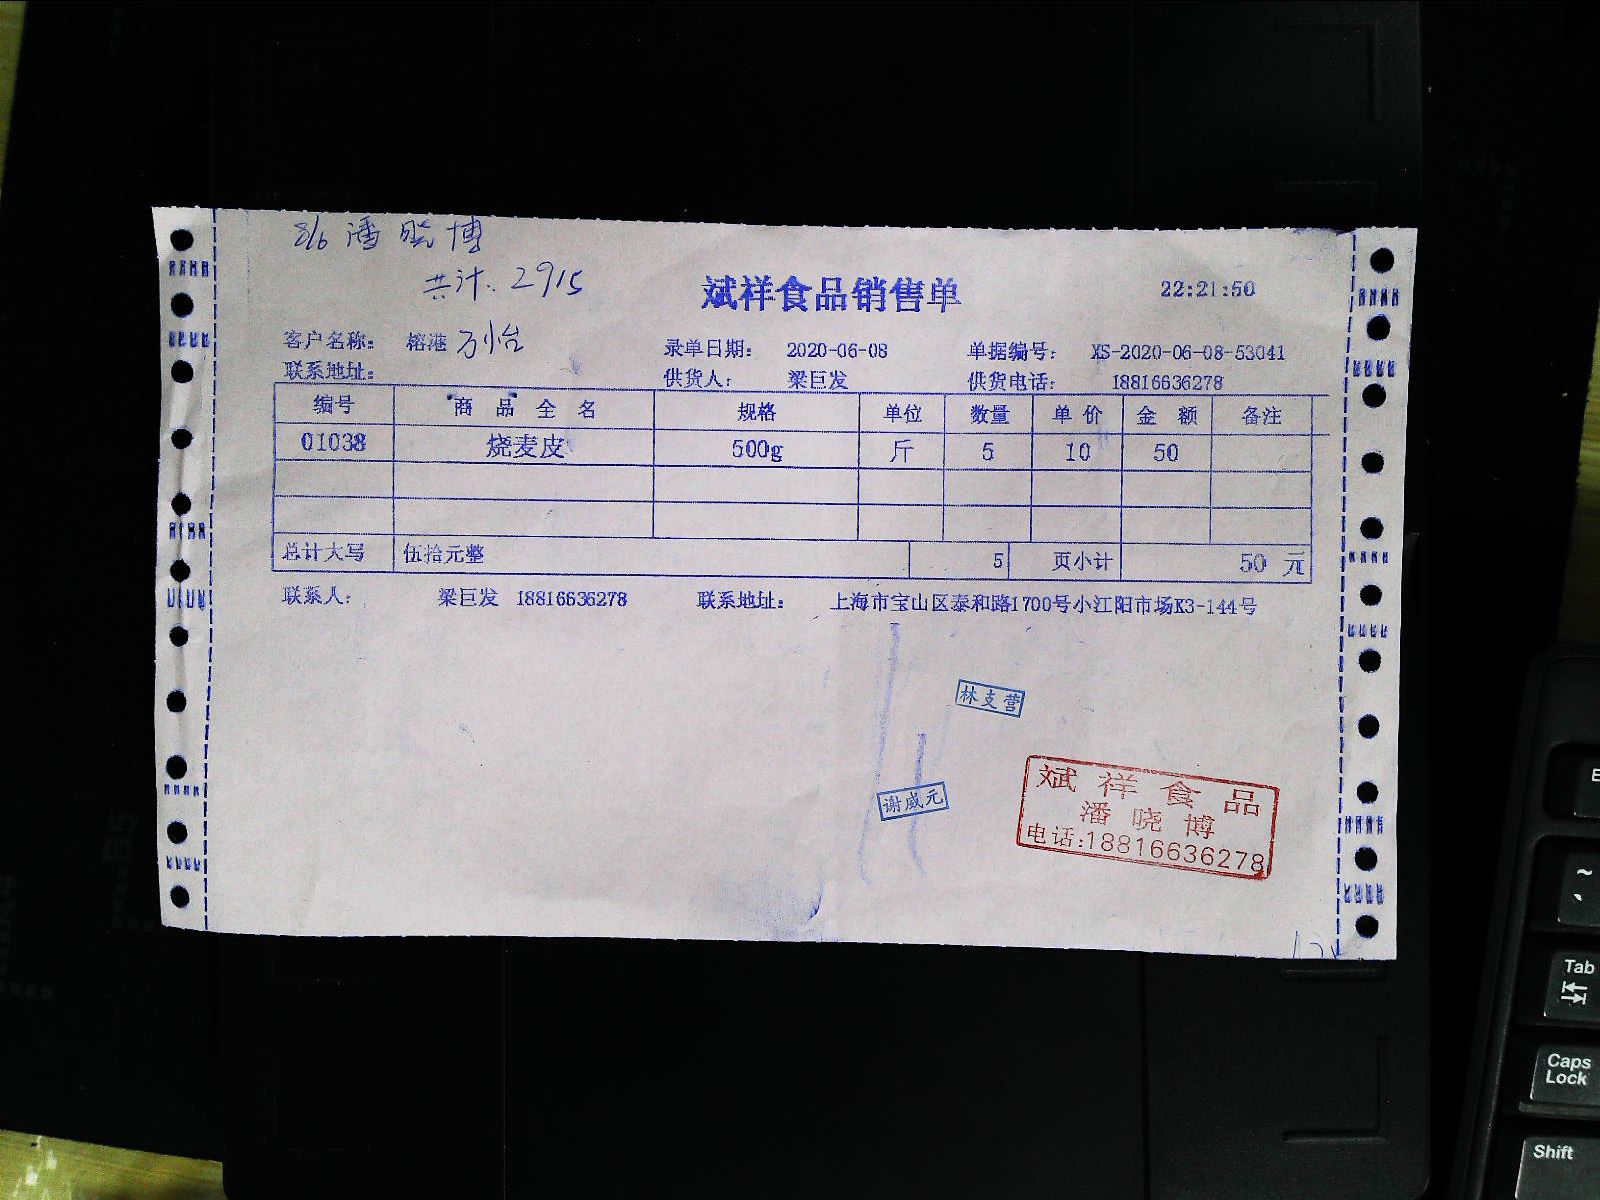 8/6 潘晓博
共计. 2915
斌祥食品销售单
22:21:50
客户名称: 榕港 万小怡 录单日期: 2020-06-08 单据编号: XS-2020-06-08-53041
联系地址: 供货人: 梁巨发 供货电话: 18816636278
编号 商品全名 规格 单位 数量 单价 金额 备注
01038 烧麦皮 500g 斤 5 10 50
总计大写 伍拾元整 5 页小计 50 元
联系人: 梁巨发 18816636278 联系地址: 上海市宝山区泰和路1700号小江阳市场K3-144号
林支营
谢威元
斌祥食品
潘晓博
电话:18816636278
Tab
Caps Lock
Shift